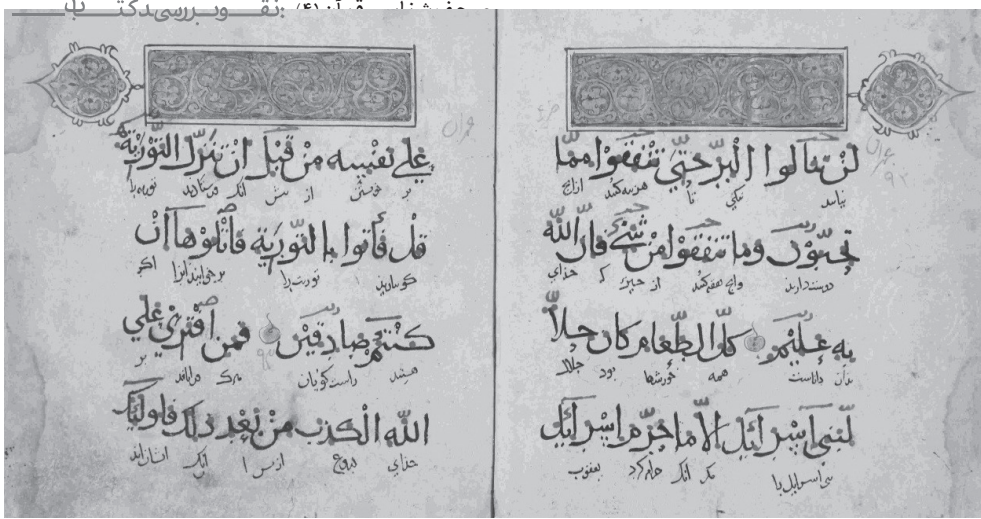 نقد و بررسی کتاب
قرآن (۴)
لن تنالوا البرّ حتّى تنفقوا ممّا
نیابید نیکی تا هزینه کنید ازانچ
تحبّون وما تنفقوا من شىء فانّ الله
دوست دارید وانچ هزینه کنید از چیزی که خدای
به عليم كلّ الطّعام كان حلاّ
بدان داناست همه خورشها بود حلال
لّبنى اسرائيل الاّ ما حرّم اسرائيل
بنی اسرایل را مکر انک حرام کرد یعقوب
على نفسه من قبل ان تنزّل التّورية
بر خویشتن از پیش انک توریه را
قل فأتوا بالتّورية فاتلوها ان
کو بیارید توریت را برخوانید انرا اکر
كنتم صادقين فمن افترى على
راست کویان هرک بر
الله الكذب من بعد ذلك فاولئك
خدای دروغ از پس انک ایشان اند